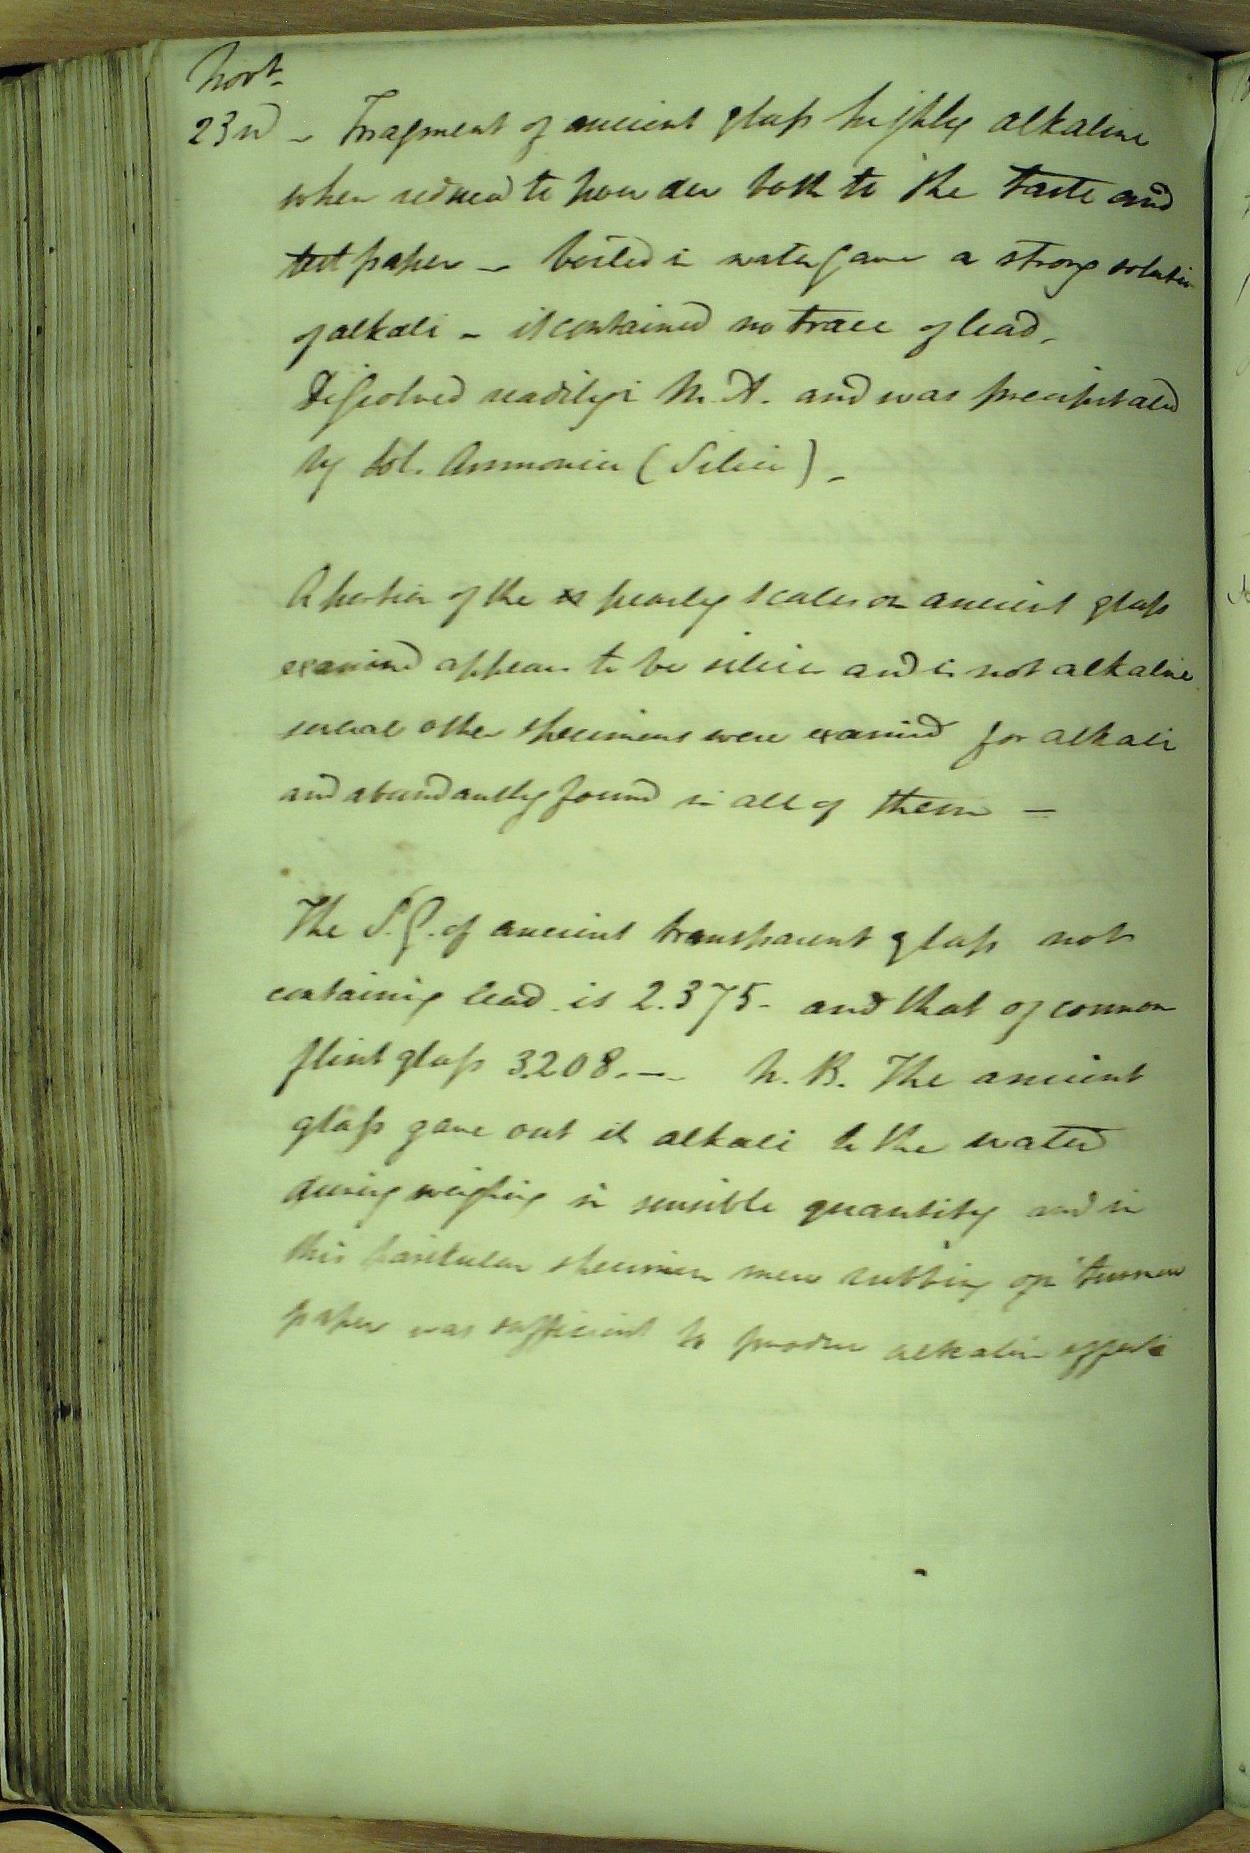 Novr.
23rd - Fragment of ancient glass highly alkaline
when reduced to powder both to the taste and
test paper - boiled in water gave a strong solution
of alkali - it contained no trace of lead.
Dissolved readily in M. A. and was precipitated
by Sol. Ammonia (Silica) -
A portion of the pearly scales on ancient glass
examined appears to be silica and is not alkaline
several other specimens were examined for alkali
and abundantly found in all of them -
The S.G. of ancient transparent glass not
containing lead is 2.375 - and that of common
flint glass 3.208. - - N.B. The ancient
glass gave out it alkali to the water
during weighing in sensible quantity and in
this particular specimen mere rubbing on turmeric
paper was sufficient to produce alkaline effects